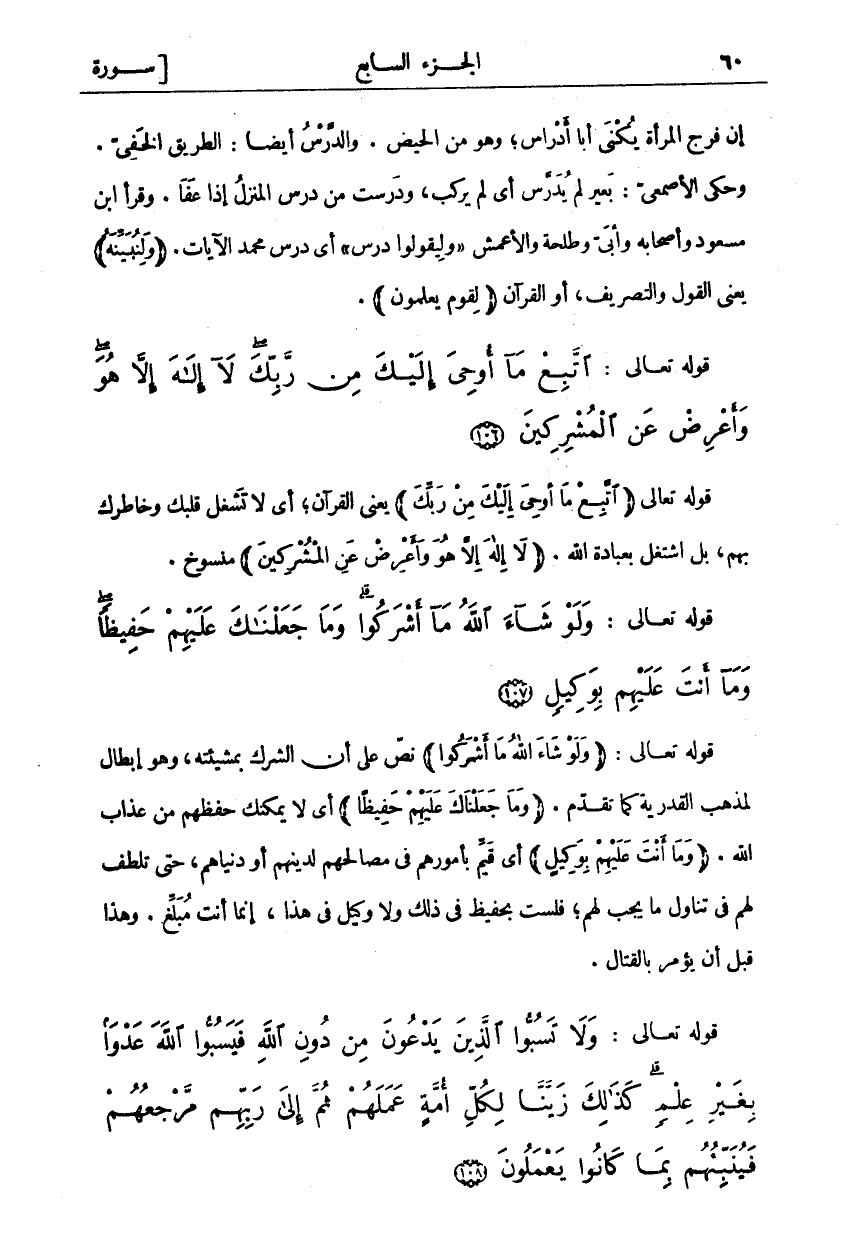 ٦٠ الجزء السابع [سورة
إن فرج المرأة يُكْنَى أبا أَدْراس؛ وهو من الحيض . والدَّرْسُ أيضا : الطريق الخَفِىّ .
وحكى الأصمعىّ : بَعير لم يُدَرَّس أى لم يركب، ودَرست من درس المنزلُ إذا عَفَا . وقرأ ابن
مسعود وأصحابه وأُبَىّ وطلحة والأعمش «ولِيقولوا درس» أى درس محمد الآيات. ﴿وَلِنُبَيِّنَهُ﴾
يعنى القول والتصريف، أو القرآن ﴿لِقوم يعلمون﴾ .
قوله تعالى : ٱتَّبِعْ مَآ أُوحِىَ إِلَيْكَ مِن رَّبِّكَ ۖ لَآ إِلَٰهَ إِلَّا هُوَ ۖ
وَأَعْرِضْ عَنِ ٱلْمُشْرِكِينَ ١٠٦
قوله تعالى ﴿ٱتَّبِعْ مَا أوحِىَ إِلَيْكَ مِنْ رَبِّكَ﴾ يعنى القرآن؛ أى لا تَشغل قلبك وخاطرك
بهم، بل اشتغل بعبادة الله . ﴿لَا إِلٰهَ إِلَّا هُوَ وَأَعْرِضْ عَنِ الْمُشْرِكِينَ﴾ منسوخ .
قوله تعالى : وَلَوْ شَآءَ ٱللَّهُ مَآ أَشْرَكُوا۟ ۗ وَمَا جَعَلْنَٰكَ عَلَيْهِمْ حَفِيظًا ۖ
وَمَآ أَنتَ عَلَيْهِم بِوَكِيلٍ ١٠٧
قوله تعالى : ﴿وَلَوْ شَاءَ اللهُ مَا أَشْرَكُوا﴾ نصّ على أن الشرك بمشيئته، وهو إبطال
لمذهب القدرية كما تقدّم . ﴿وَمَا جَعَلْنَاكَ عَلَيْهِمْ حَفِيظًا﴾ أى لا يمكنك حفظهم من عذاب
الله . ﴿وَمَا أَنْتَ عَلَيْهِمْ بِوَكِيلٍ﴾ أى قَيِّم بأمورهم فى مصالحهم لدينهم أو دنياهم، حتى تلطف
لهم فى تناول ما يجب لهم؛ فلست بحفيظ فى ذلك ولا وكيل فى هذا ، إنما أنت مُبَلِّغ . وهذا
قبل أن يؤمر بالقتال .
قوله تعالى : وَلَا تَسُبُّوا۟ ٱلَّذِينَ يَدْعُونَ مِن دُونِ ٱللَّهِ فَيَسُبُّوا۟ ٱللَّهَ عَدْوًۢا
بِغَيْرِ عِلْمٍ ۗ كَذَٰلِكَ زَيَّنَّا لِكُلِّ أُمَّةٍ عَمَلَهُمْ ثُمَّ إِلَىٰ رَبِّهِم مَّرْجِعُهُمْ
فَيُنَبِّئُهُم بِمَا كَانُوا۟ يَعْمَلُونَ ١٠٨